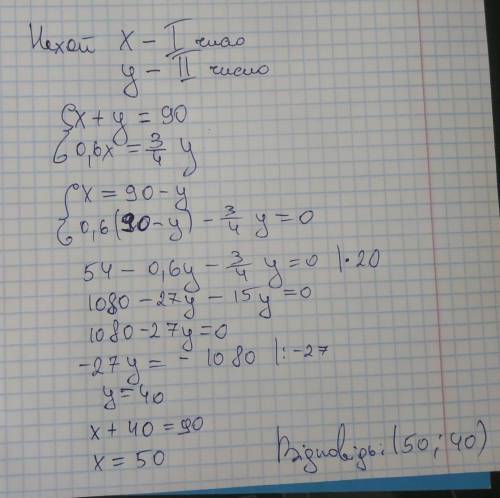 Нехай x – I число
y – II число
x + y = 90
0,6x = 3/4 y
x = 90 - y
0,6(90 - y) - 3/4 y = 0
54 - 0,6y - 3/4 y = 0 |·20
1080 - 27y - 15y = 0
1080 - 27y = 0
-27y = - 1080 |: -27
y = 40
x + 40 = 90
x = 50
Відповідь: (50; 40)